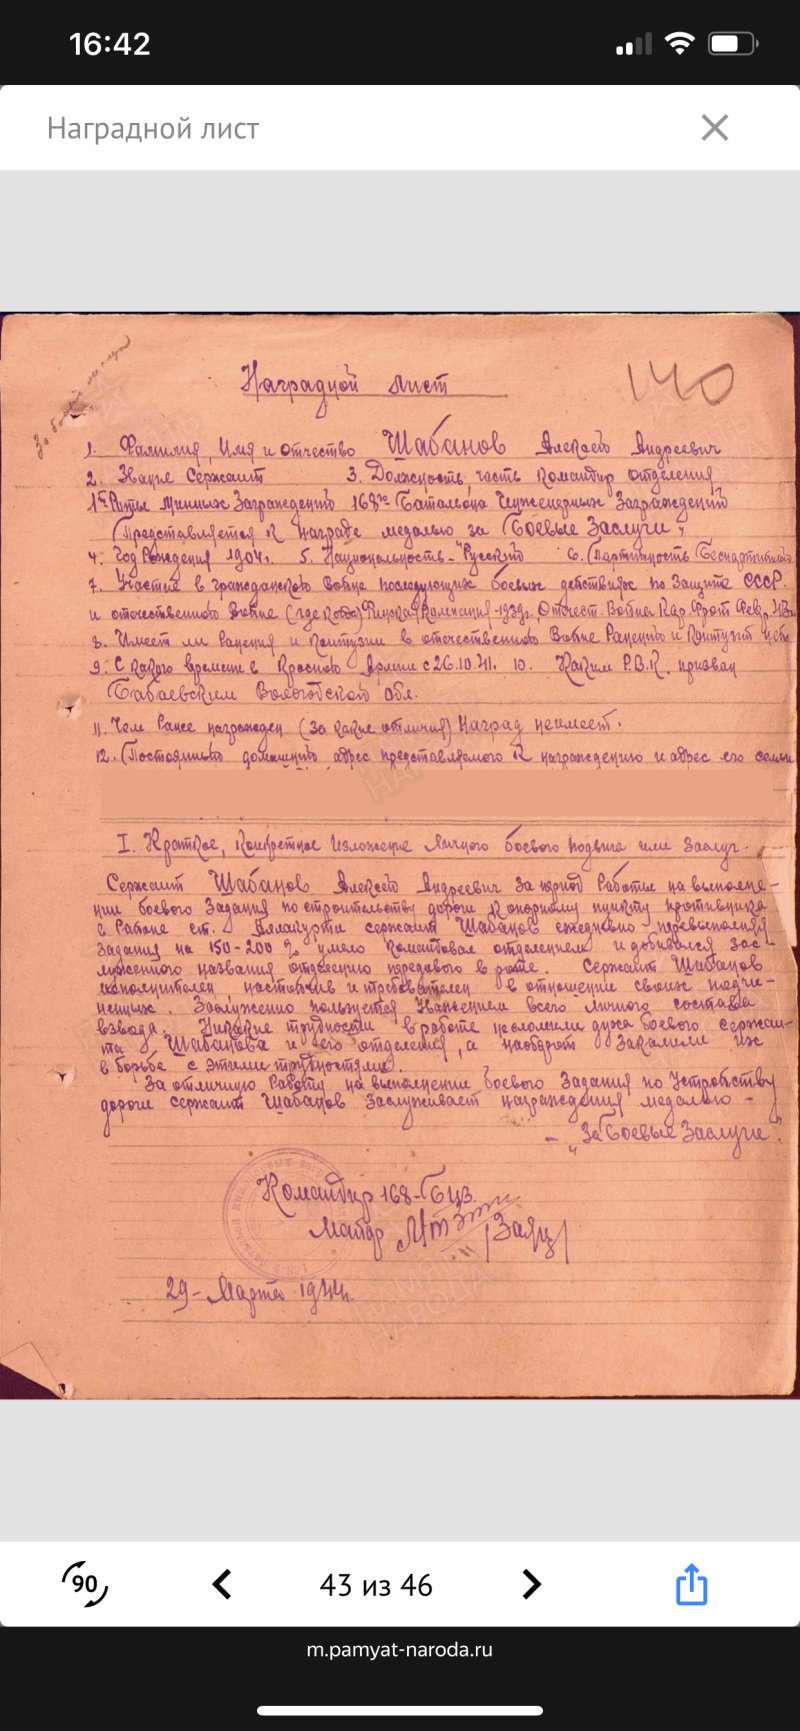 16:42
Наградной лист
За боевые заслуги
Наградной лист
140
1. Фамилия, Имя и отчество Шабанов Алексей Андреевич
2. Звание Сержант 3. Должность, часть командир отделения
1й Роты минных Заграждений 168го Батальона Инженерных Заграждений
Представляется к награде медалью за "Боевые Заслуги"
4. Год Рождения 1904г. 5. Национальность - Русский 6. Партийность Беспартийный
7. Участие в гражданской войне последующих боевых действиях по Защите СССР.
и отечественной войне (где когда) Финская кампания - 1939г., Отечест. Война Кар. Фронт Февр.
8. Имеет ли Ранения и контузии в отечественной войне Ранений и контузий
9. С какого времени в Красной Армии с 26.10.41. 10. Каким Р.В.К. призван
Бабаевским Вологодской обл.
11. Чем Ранее награжден (За какие отличия) Наград неимеет.
12. Постоянный домашний адрес представляемого к награждению и адрес его семьи
I. Краткое, конкретное изложение личного боевого подвига или заслуг.
Сержант Шабанов Алексей Андреевич за период Работы на выполне-
нии боевого Задания по строительству дороги к опорному пункту противника
в Районе ст. Аллакурти сержант Шабанов ежедневно перевыполнял
задания на 150-200% умело командовал отделением и добивался зас-
луженного названия отделению передового в роте. Сержант Шабанов
исполнителен настойчив и требователен в отношении своих подчи-
ненных. Заслуженно пользуется Уважением всего личного состава
взвода. Никакие трудности в работе несломили духа боевого сержан-
та Шабанова и его отделения, а наоборот Закалили их
в борьбе с этими трудностями.
За отличную Работу на выполнении боевого Задания по устройству
дороги сержант Шабанов Заслуживает награждения медалью -
- "За Боевые Заслуги".
Командир 168-БИЗ
Майор /Заяц/
29 - Марта 1944г.
43 из 46
90
m.pamyat-naroda.ru